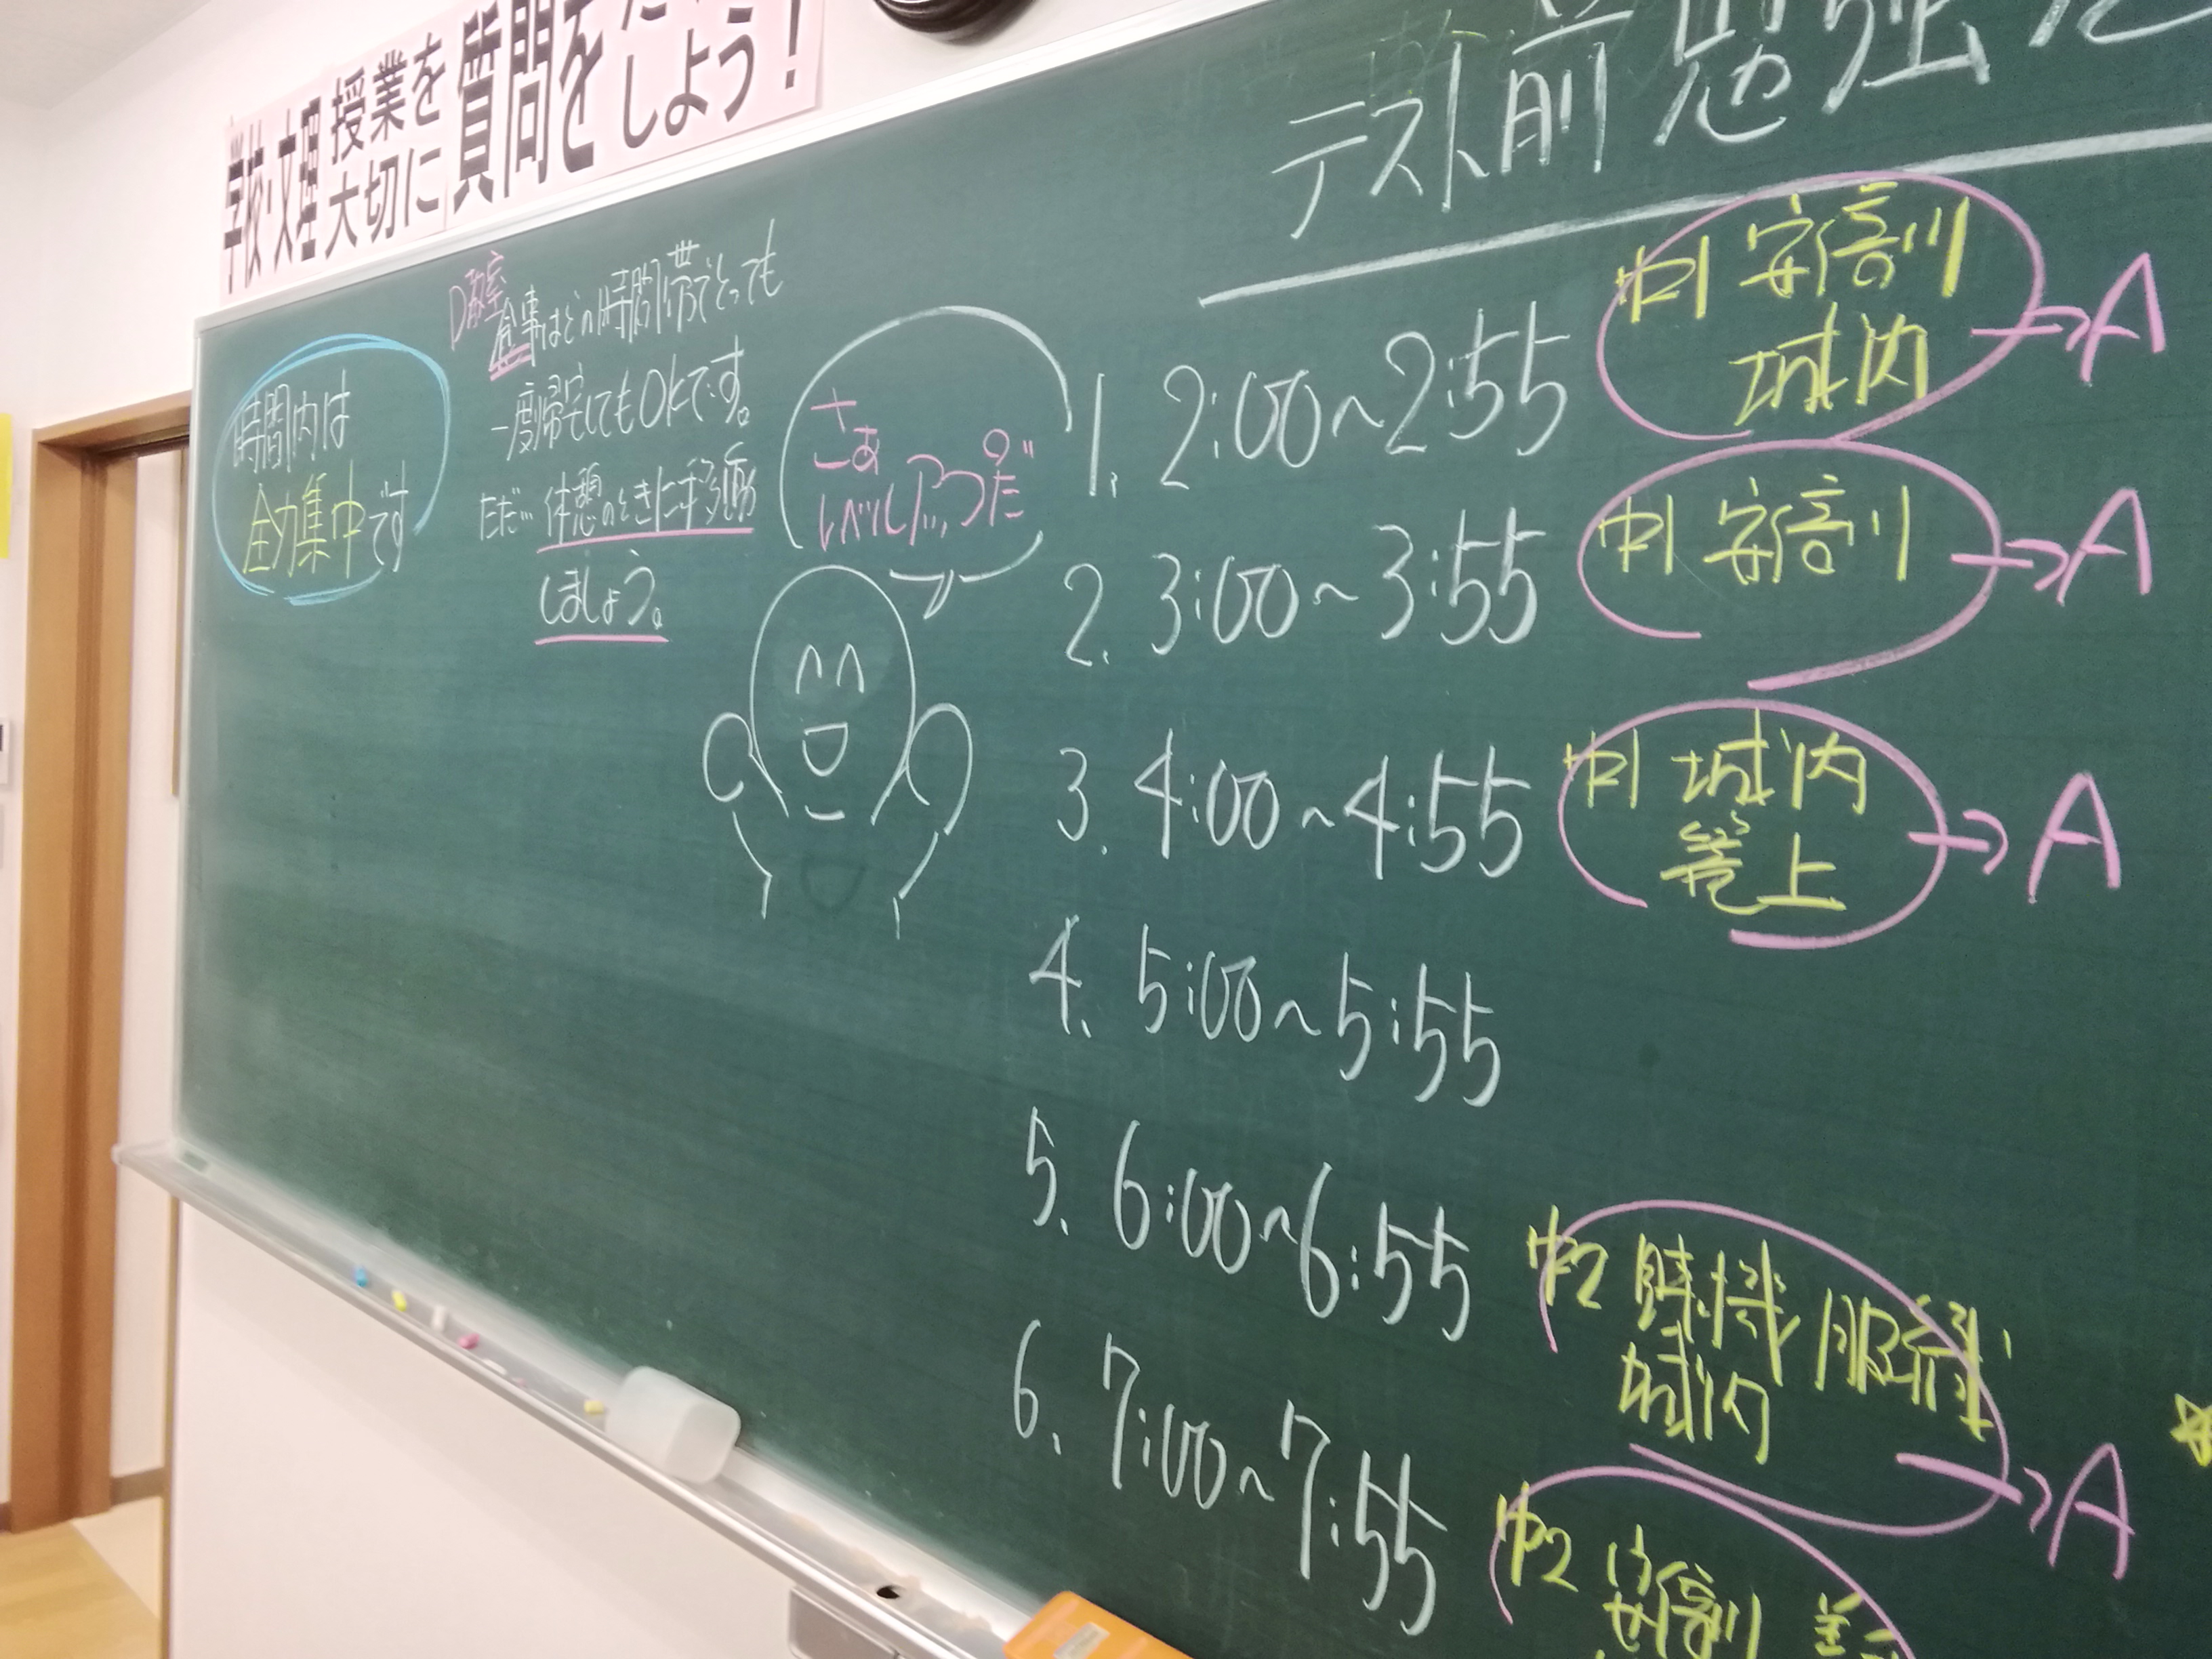 学校・文理 授業を
大切に
質問を
しよう!
テスト前勉強
時間内は
全力集中です
D教室
食事はどの時間帯でとっても
一度帰宅してもOKです。
ただ… 休憩のときに移動
しましょう。
さぁ
レベルアップだ
1. 2:00~2:55
中1 安倍川
城内
→A
2. 3:00~3:55
中1 安倍川
→A
3. 4:00~4:55
中1 城内
籠上
→A
4. 5:00~5:55
5. 6:00~6:55
中2 服織
城内
→A
6. 7:00~7:55
中2 安倍川